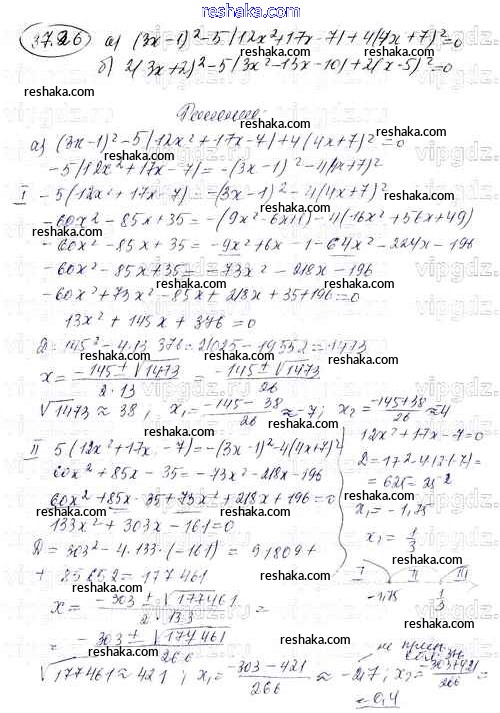 37.26 а) (3x-1)²-5|12x²+17x-7|+4(4x+7)²=0
б) 2(3x+2)²-5|3x²-13x-10|+2(x-5)²=0
reshaka.com
Решение:
reshaka.com
а) (3x-1)²-5|12x²+17x-7|+4(4x+7)²=0
-5|12x²+17x-7|=-(3x-1)²-4(4x+7)²
I -5(12x²+17x-7)=-(3x-1)²-4(4x+7)²
-60x²-85x+35=-(9x²-6x+1)-4(16x²+56x+49)
-60x²-85x+35=-9x²+6x-1-64x²-224x-196
-60x²-85x+35=-73x²-218x-196
-60x²+73x²-85x+218x+35+196=0
13x²+145x+376=0
D=145²-4·13·376=21025-19552=1473
x=(-145±√1473)/(2·13)=(-145±√1473)/26
√1473≈38; x₁=(-145-38)/26≈-7; x₂=(-145+38)/26≈4
II 5(12x²+17x-7)=-(3x-1)²-4(4x+7)²
60x²+85x-35=-73x²-218x-196
60x²+85x-35+73x²+218x+196=0
133x²+303x-161=0
D=303²-4·133·(-161)=91809+
+85652=177461
x=(-303±√177461)/(2·133)=
=(-303±√177461)/266
√177461≈421; x₁=(-303-421)/266≈-2,7; x₂=(-303+421)/266=
=0,4
12x²+17x-7=0
D=17²-4·12·(-7)=
=625=25²
x₁=-1,75
x₂=1/3
I II III
-1,75 1/3